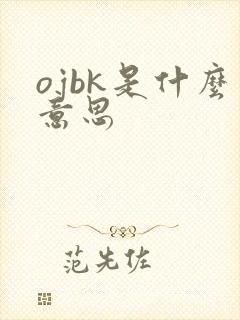 ojbk是什麼
意思
范先佐